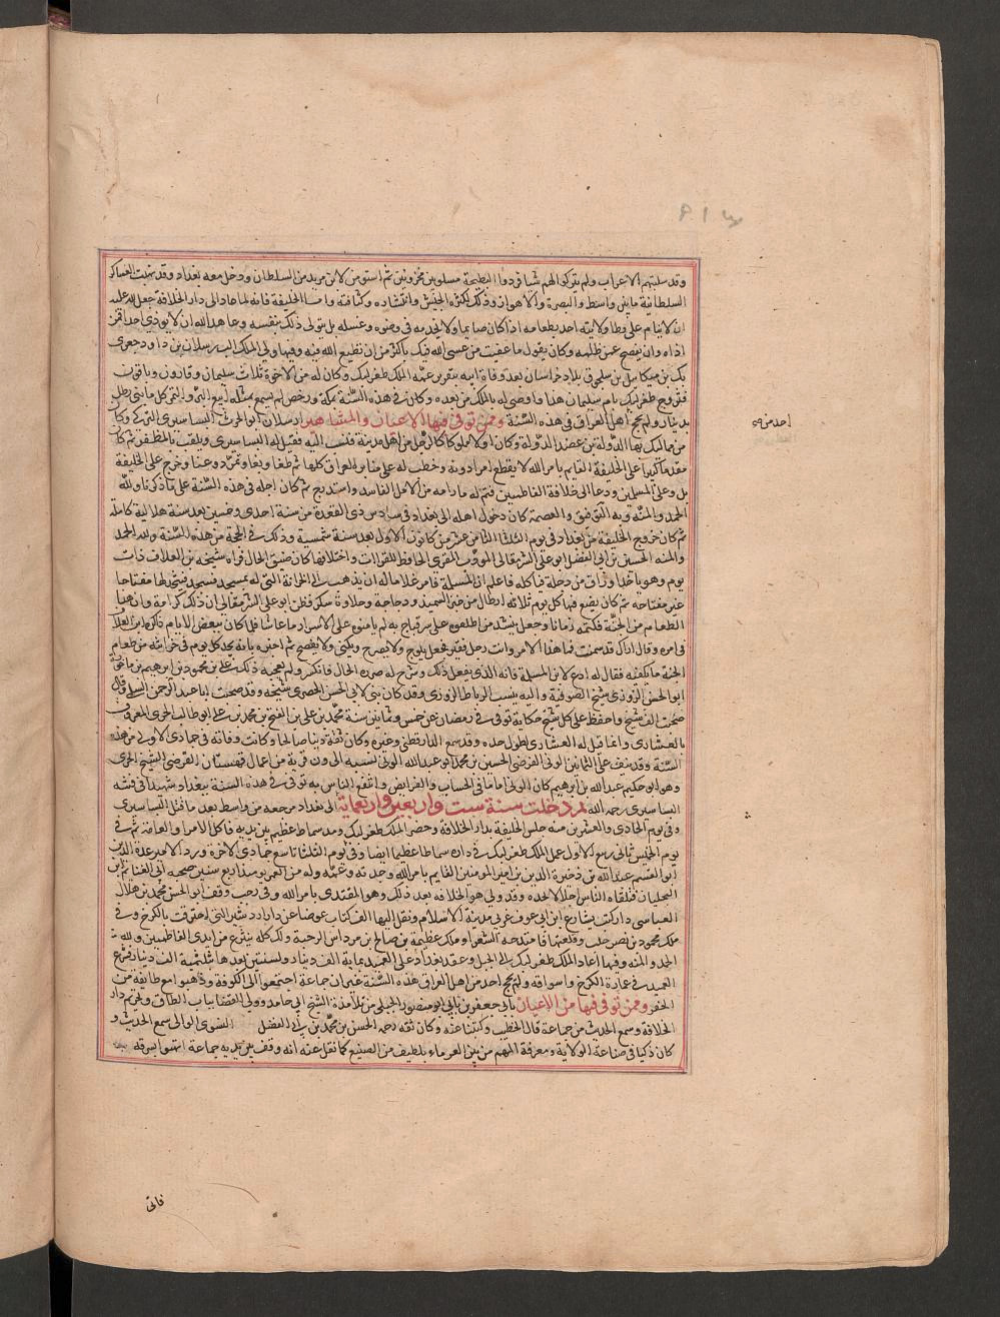 وقد سلبتهم الاعراب ولم يتركوا لهم شيا ثم استوهن من السلطان ودخل معه بغداد وقد نهبت العساكر
السلطانية مابين واسط والبصرة والاهواز وذلك لكثرة الجيش وانتشاره وكثافته واما الخليفة فانه لما عاد الى دار الخلافة جعل لله عليه
ان لا ينام على وطا ولا ياتيه احد بطعامه اذا كان صايما ولا يخدمه في وضوه وغسله بل يتولى ذلك بنفسه وعاهد الله ان لا يوذي احدا ممن
اذاه وان يصفح عمن ظلمه وكان يقول ما عاقبت من عصى الله فيك باكثر من ان تطيع الله فيه وفيها ولي الملك الب رسلان بن داود جعري
بك بن ميكاييل بن سلجوق بلاد خراسان بعد وفاة ابيه بتقرير عمه الملك طغرلبك وكان له من الاخوة ثلاث سليمان وقارون وياقوتي
فتزوج طغرلبك بام سليمان هذا واوصى له بالملك من بعده وكان في هذه السنة بمكة رخص لم يسمع بمثله ابيع البر والتمر كل مايتي رطل
بدينار ولم يحج اهل العراق في هذه السنة وممن توفي فيها من الاعيان والمشاهير ارسلان ابو الحرث البساسيري التركي وكان
من مماليك بهاالدولة بن عضد الدولة وكان اولا مملوكا لرجل من اهل مدينة فنسب اليه فقيل له البساسيري ويلقب بالمظفر ثم كان
مقدما كبيرا على الخليفة القايم بامر الله لا يقطع امرا دونه وخطب له على منابر العراق كلها ثم طغا وبغا وتمرد وعتا وخرج على الخليفة
بل وعلى المسلمين ودعا الى خلافة الفاطميين فتم له ما رامه من الامل الفاسد واستدرج ثم كان اجله في هذه السنة على ما ذكرنا ولله
الحمد والمنة وبه التوفيق والعصمة كان دخول اهله الى بغداد في سادس ذي القعدة من سنة احدى وخمسين بعد سنة هلالية كاملة
ثم كان خروج الخليفة من بغداد في يوم الثلثا الثامن عشر من كانون الاول بعد سنة شمسية وذلك في الحجة من هذه السنة ولله الحمد
والمنه الحسين بن ابي الفضل ابو علي الشرمقاني المودب المقري الحافظ للقراات واختلافها كان ضيق الحال فراه شيخه بن العلاف ذات
يوم وهو ياخذ اوراق من دجلة فياكله فاعلم ابن المسلمة فامر غلاما له ان يذهب الى الخزانة التي له بمسجده فيتخذ لها مفتاحا
غير مفتاحه ثم كان يضع فيها كل يوم ثلاثة ارطال من خبز السميذ ودجاجة وحلاوة سكر فظن ابو علي الشرمقاني ان ذلك كرامة وان هذا
الطعام من الجنة فكتمه زمانا وجعل ينشد من اطلعوه على سر فباح به لم يامنوه على الاسرار ما عاشا فلما كان ببعض الايام ذاكره ابن العلاف
في امره وقال اراك قد سمنت فما هذا الامر وانت رجل فقير فجعل يلوح ولا يصرح ويكني ولا يفصح ثم اخبره بانه يجد كل يوم في خزانته من طعام
الجنة ما يكفيه فقال له ادع لابن المسلمة فانه الذي يفعل ذلك وشرح له صورة الحال فانكسر ولم يعجبه ذلك علي بن محمود بن ابراهيم بن ماخرة
ابو الحسن الزوزني شيخ الصوفية واليه ينسب الرباط الزوزني وقد كان بني لابي الحسن الحصري شيخه وقد صحب ابا عبد الرحمن السلمي قال
صحبت الف شيخ واحفظ على كل شيخ حكاية توفي في رمضان عن خمس وثمانين سنة محمد بن علي بن الفتح بن محمد بن علي ابو طالب الحربي المعروف
بالعشاري وانما قيل له العشاري لطول جسده وقد سمع الدارقطني وغيره وكان ثقة دينا صالحا وكانت وفاته في جمادى الاولى من هذه
السنة وقد نيف على الثمانين الوني الفرضي الحسين بن محمد ابو عبد الله الوني لنسبه الى ون قرية من اعمال قهستان الفرضي الشيخ الحربي
وهو ابو حكيم عبد الله بن ابراهيم كان الوني اماما في الحساب والفرايض وانتفع الناس به توفي في هذه السنة ببغداد شهيدا في فتنه
البساسيري رحمه الله ثم دخلت سنة ست واربعين واربعماية الى بغداد مرجعه من واسط بعد ما قتل البساسيري
وفي يوم الحادي والعشرين منه جلس الخليفة بدار الخلافة وحضر الملك طغرلبك ومد سماط عظيم بين يديه فاكل الامرا والعامة ثم في
يوم الخميس ثاني ربيع الاول عمل الملك طغرلبك في داره سماطا عظيما ايضا وفي يوم الثلثا تاسع جمادى الاخرة ورد الامير عدة الدين
ابو القسم عبد الله بن ذخيرة الدين بن امير المومنين القايم بامر الله وجدته وعمته وله من العمر يوميذ اربع سنين صحبه ابي الغنايم بن
المحلبان فتلقاه الناس اجلالا لجده وقد ولي هو الخلافه بعد ذلك وهو المقتدي بامر الله وفي رجب وقف ابو الحسن محمد بن هلال
العباسي دار كتب بشارع ابن ابي عوف غربي مدينة الاسلام ونقل اليها الف كتاب عوضا عن دار اردشير التي احترقت بالكرخ وفي
ملك محمود بن نصر حلب وقلعتها فامتدحه الشعرا وملك عطية بن صالح بن مرداس الرحبة وذلك كله ينتزع من ايدي الفاطميين ولله
الحمد والمنه وفيها اعاد الملك طغرلبك الى الجبل وعقد بغداد على العميد بماية الف دينار ولسنتين بعدها بثلثماية الف دينار فشرع
العميد في عمارة الكرخ واسواقه ولم يحج احد من اهل العراق هذه السنة غير ان جماعة اجتمعوا الى الكوفة وذهبوا مع طايفة من
الخفر وممن توفي فيها من الاعيان باي جعفر بن باي ابو منصور الجيلي من تلامذة الشيخ ابي حامد وولي القضا بباب الطاق وبحريم دار
الخلافة وسمع الحديث من جماعة قال الخطيب وكتبنا عنه وكان ثقه رحمه الحسن بن محمد بن ابي الفضل النسوي الوالي سمع الحديث و
كان ذكيا في صناعة الولاية ومعرفة المتهم من بين الغرماء بلطيف من الصنيع كما نقل عنه انه وقف بين يديه جماعة اتهموا بسرقه
فاتي